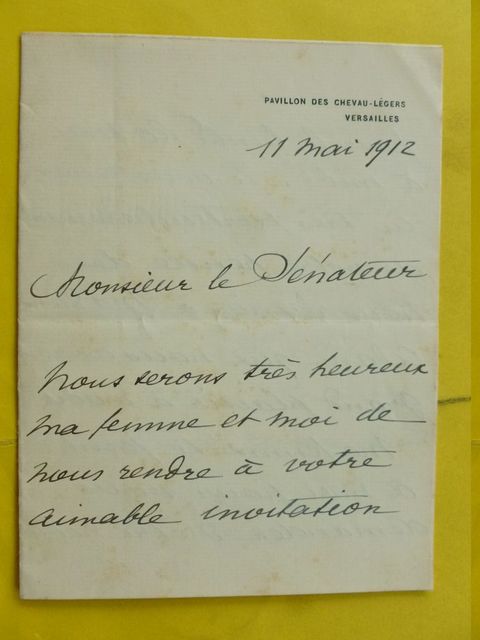 PAVILLON DES CHEVAU-LÉGERS
VERSAILLES
11 mai 1912
Monsieur le Sénateur
Nous serons très heureux
ma femme et moi de
nous rendre à votre
aimable invitation